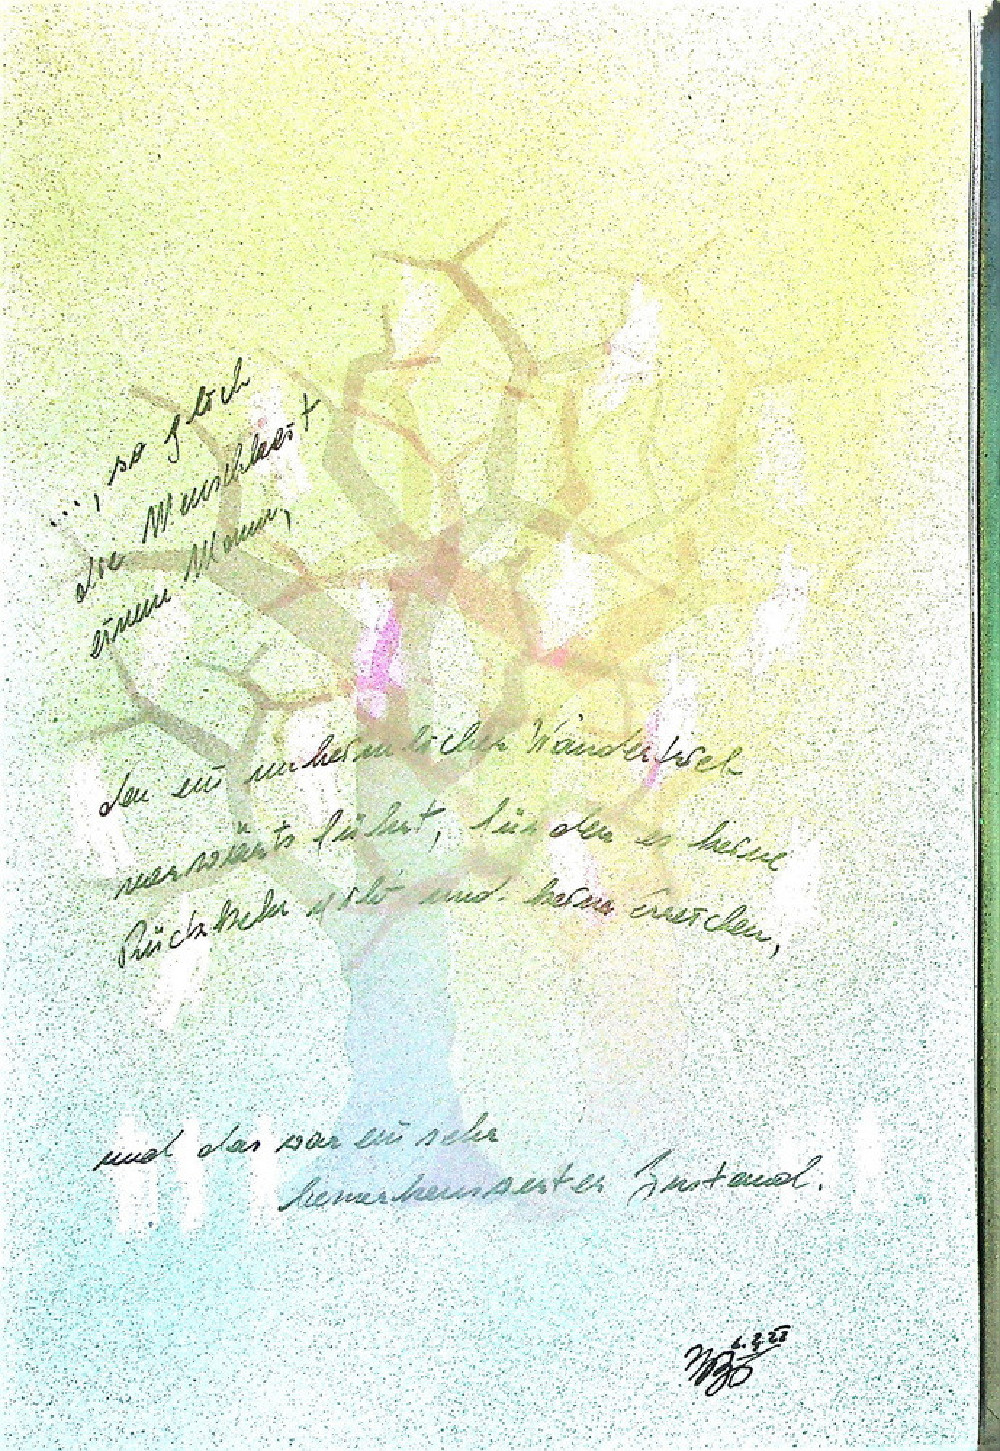 ..., so glich
die Menschheit
einem Mann,
den ein unheimlicher Wandertrieb
vorwärts führt, für den es keine
Rückkehr gibt und kein erreichen,
und das war ein sehr
bemerkenswerter Zustand.